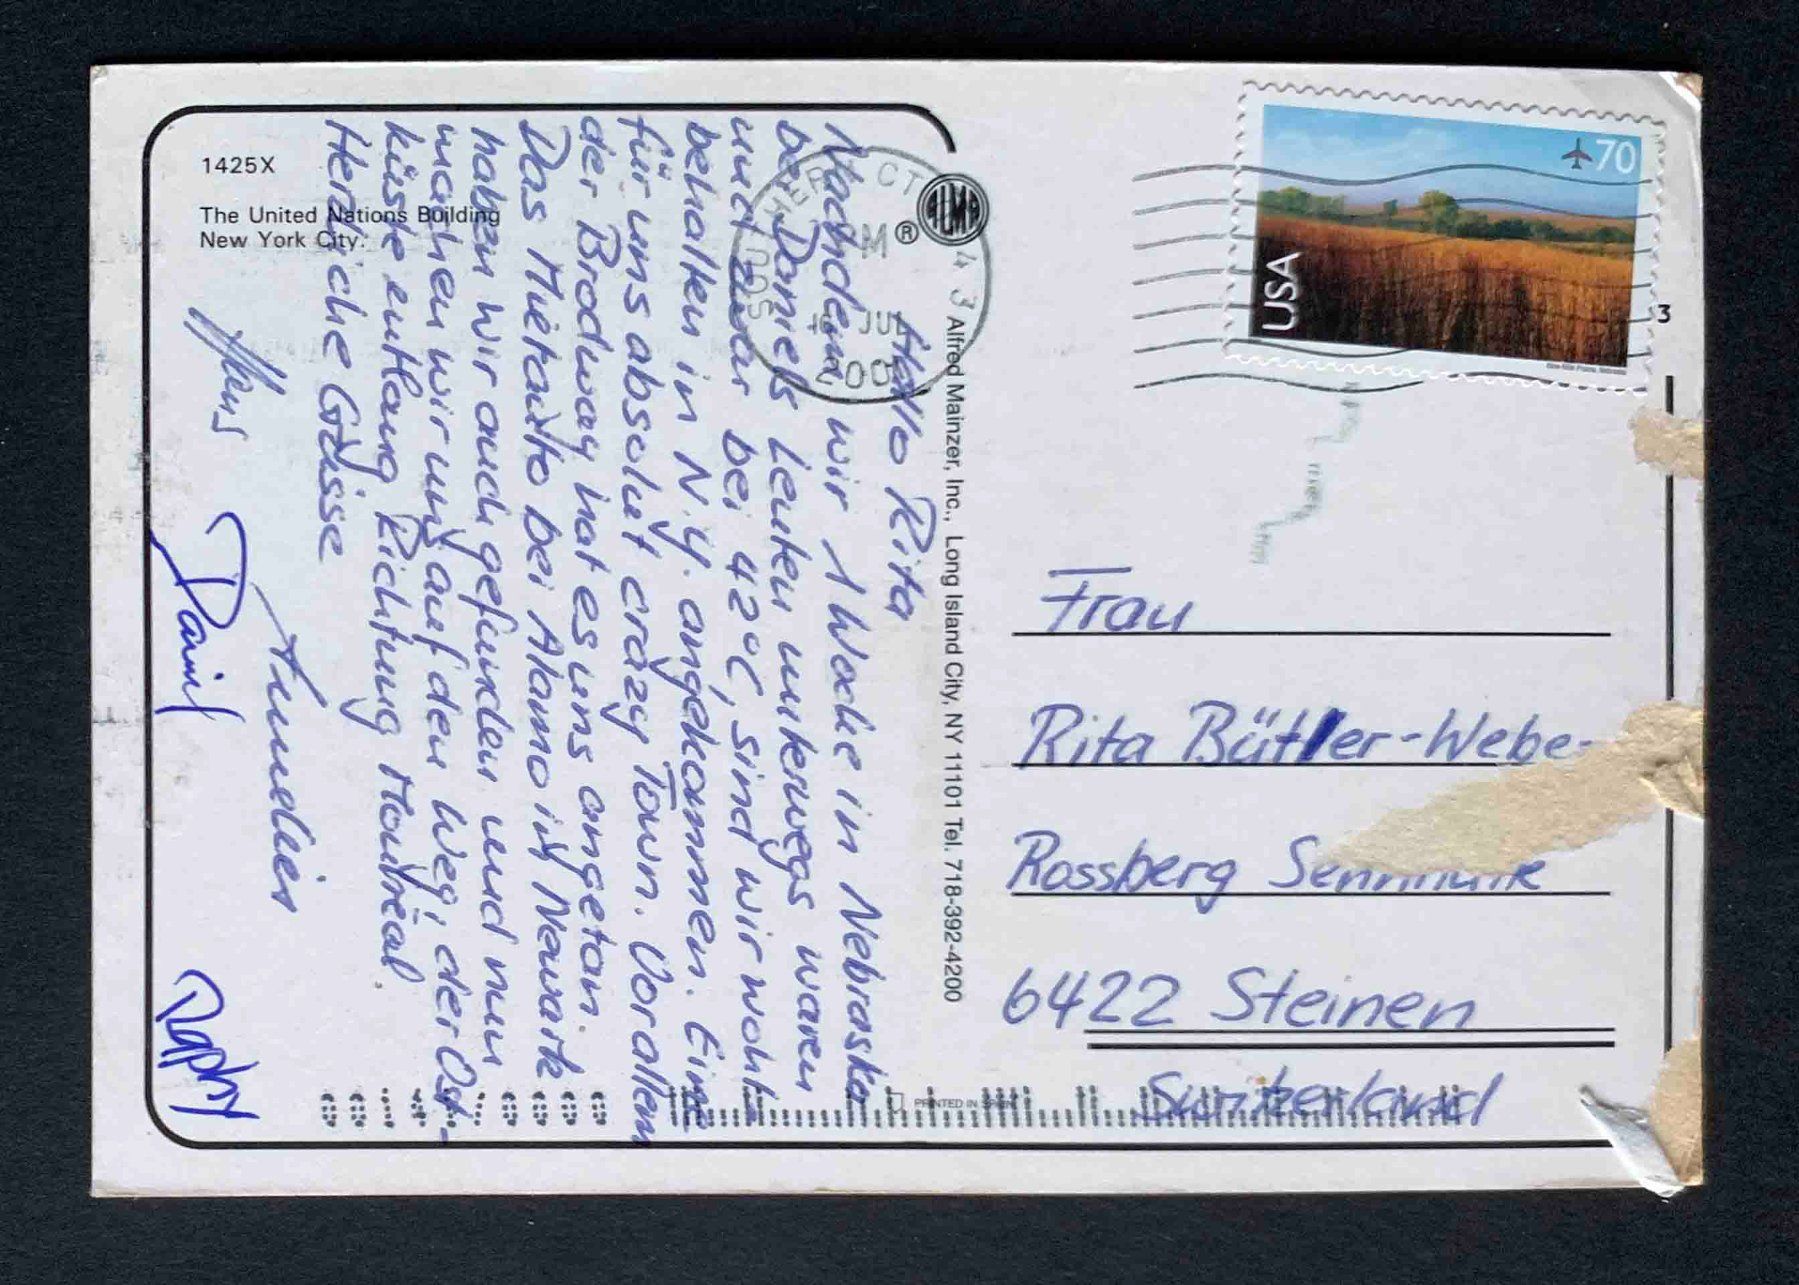 1425X
The United Nations Building
New York City.
Hallo Rita
Nachdem wir 1 Woche in Nebraska
bei Daniels Leuten unterwegs waren
und zwar bei 42°C, sind wir wohl-
behalten in N.Y. angekommen. Eine
für uns absolut crazy Town. Vorallem
der Brodway hat es uns angetan.
Das Mietauto bei Alamo in Newark
haben wir auch gefunden und nun
machen wir uns auf den Weg, der Ost-
küste entlang Richtung Montréal.
Herzliche Grüsse
Annelies
Hans
Daniel
Raphy
ALMA
®
Alfred Mainzer, Inc., Long Island City, NY 11101 Tel. 718-392-4200
PRINTED IN
CT
43
USA
70
3
Frau
Rita Bütler-Webe
Rossberg
6422 Steinen
Switzerland